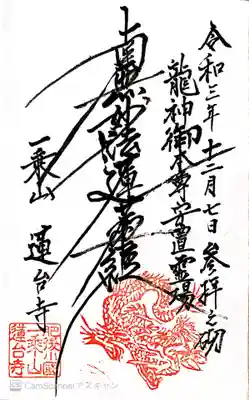 令和三年十二月七日参拝之砌
龍神御本尊安置霊場
南無妙法蓮華経
一乗山 蓮台寺
肥後国
一乗山
蓮台寺
CamScanner でスキャン